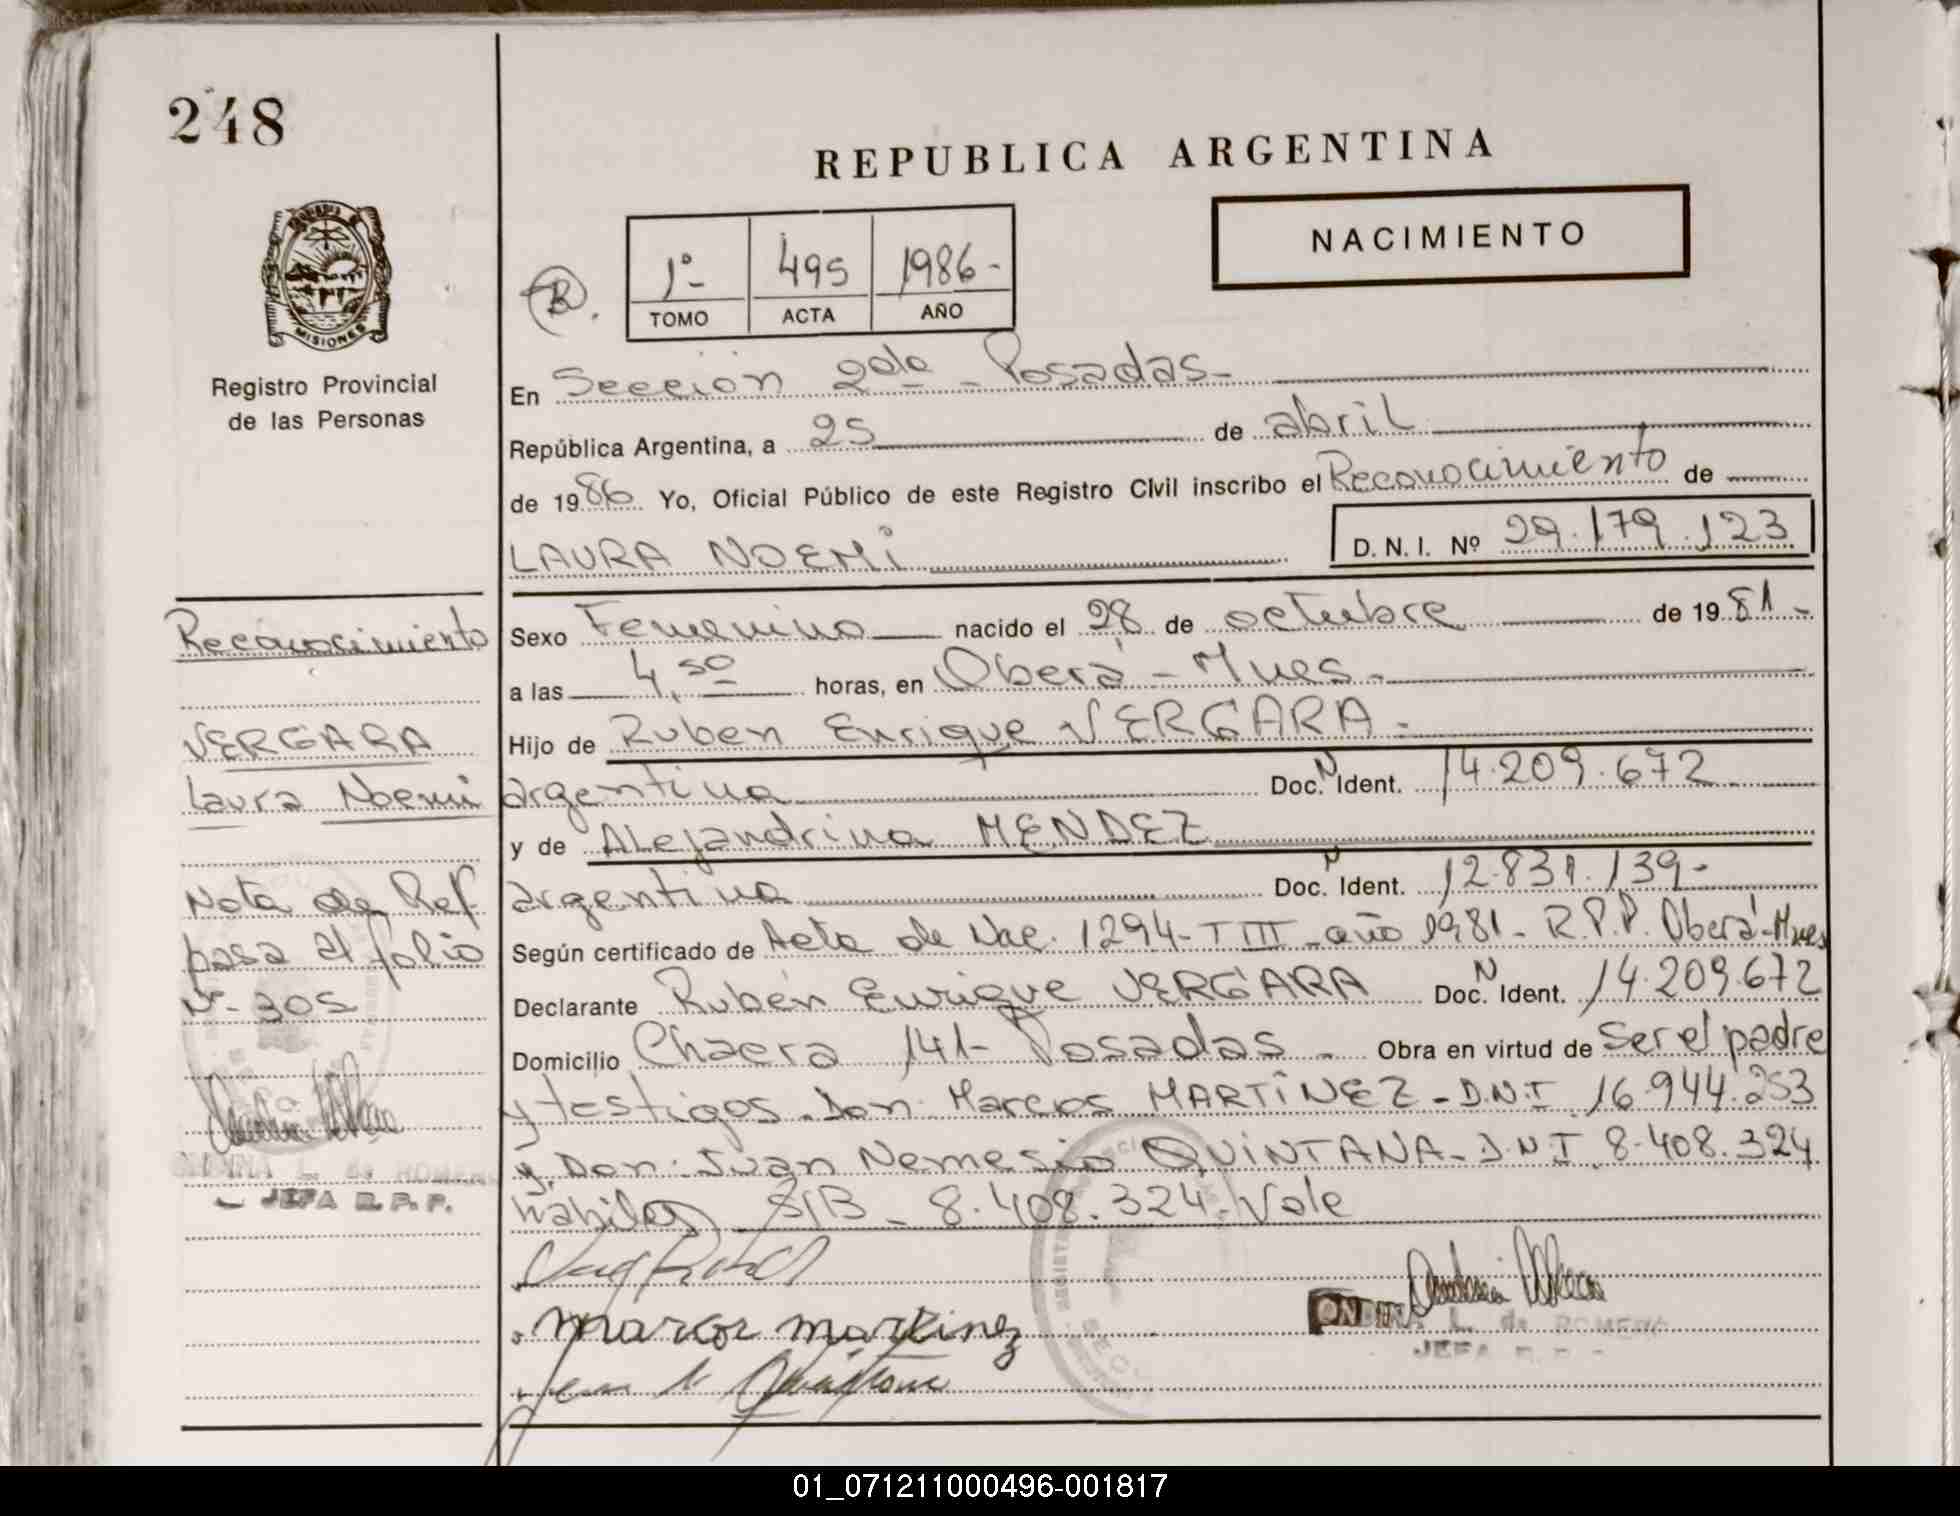 248
REPUBLICA ARGENTINA
NACIMIENTO
PROVINCIA DE
MISIONES
Registro Provincial
de las Personas
1º- 495 1986-
TOMO ACTA AÑO
En Sección 2da - Posadas-
República Argentina, a 25 de abril
de 1986 Yo, Oficial Público de este Registro Civil inscribo el Reconocimiento de
LAURA NOEMi D. N. I. Nº 29.179.123
Sexo Femenino nacido el 28 de octubre de 1981-
a las 4,50 horas, en Oberá - Mnes-
Hijo de Ruben Enrique VERGARA-
argentina Doc. N Ident. 14.209.672
y de Alejandrina MENDEZ
argentina Doc. N Ident. 12.831.139-
Según certificado de Acta de Nac. 1294-T III-año 1981- R.P.P. Oberá-Mnes
Declarante Rubén Enrique VERGARA Doc. N Ident. 14.209.672
Domicilio Chacra 141- Posadas - Obra en virtud de ser el padre
y testigos Don Marcos MARTiNEZ-D.N.I 16.944.253
y Don Juan Nemesio QUiNTANA-D.N.I 8.408.324
hábiles S/B - 8.408.324-Vale
Reconocimiento
VERGARA
Laura Noemi
Nota de Ref.
pasa al folio
Nº-305
L. de ROMERO
JEFA R. P. P.
marcos martinez
Juan N. Quintana
ONDINA L. de ROMERO
JEFA
01_071211000496-001817